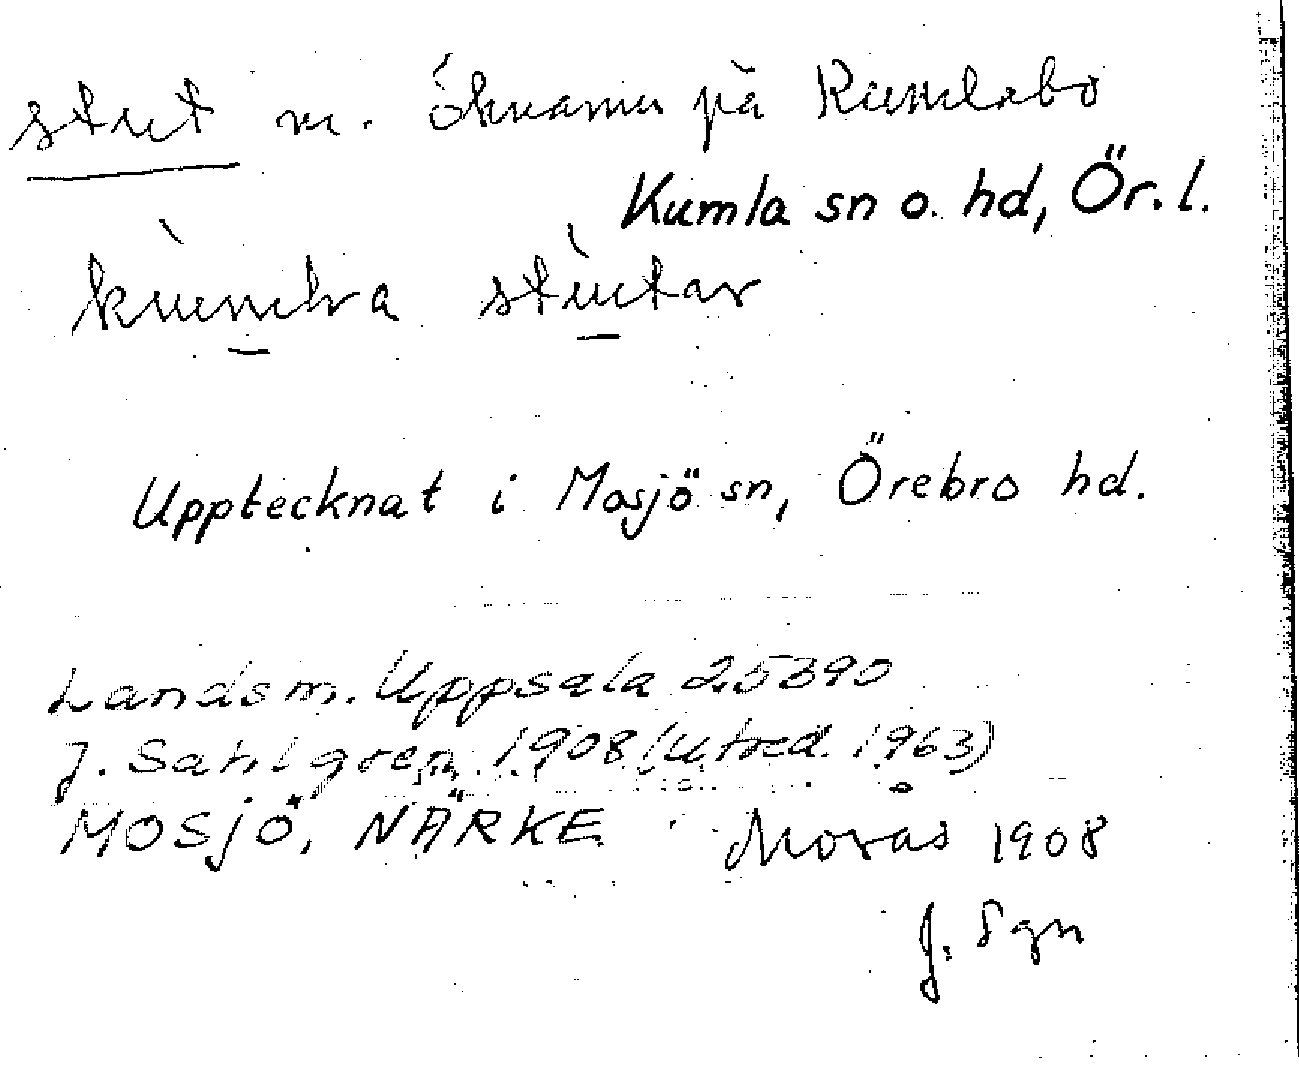 stut m. öknamn på Kumlabo
Kumla sn o. hd, Ör. l.
kùmlra stùtar
Upptecknat i Mosjö sn, Örebro hd.
Landsm. Uppsala 25390
J. Sahlgren 1908 (utred. 1963)
MOSJÖ, NÄRKE Morås 1908
J. Sgn